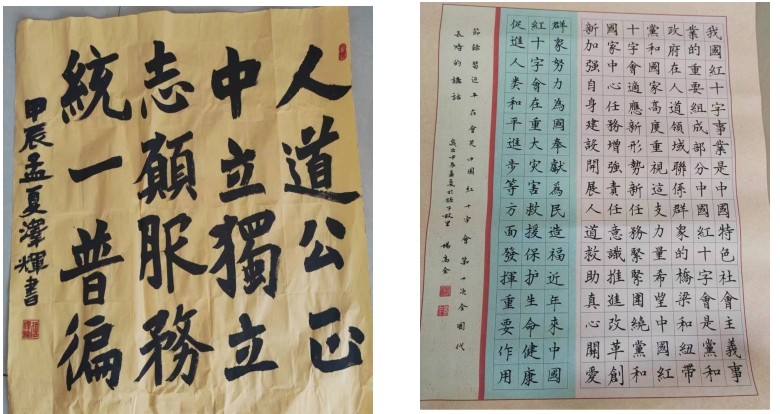 人道公正
中立獨立
志願服務
統一普徧
甲辰孟夏澤輝書
我國紅十字事業是中國特色社會主義事
業的重要組成部分中國紅十字會是黨和
政府在人道領域聯係群衆的橋梁和紐帶
黨和國家高度重視這支力量希望中國紅
十字會適應新形勢新任務緊緊圍繞黨和
國家中心任務增強責任意識推進改革創
新加强自身建設開展人道救助真心關愛
群衆努力為國奉獻為民造福近年來中國
紅十字會在重大灾害救援保护生命健康
促進人类和平進步等方面發揮重要作用
節錄習近平在會見中國紅十字會第十次全國代
表時的講話
甲辰孟夏於 故里 楊高全